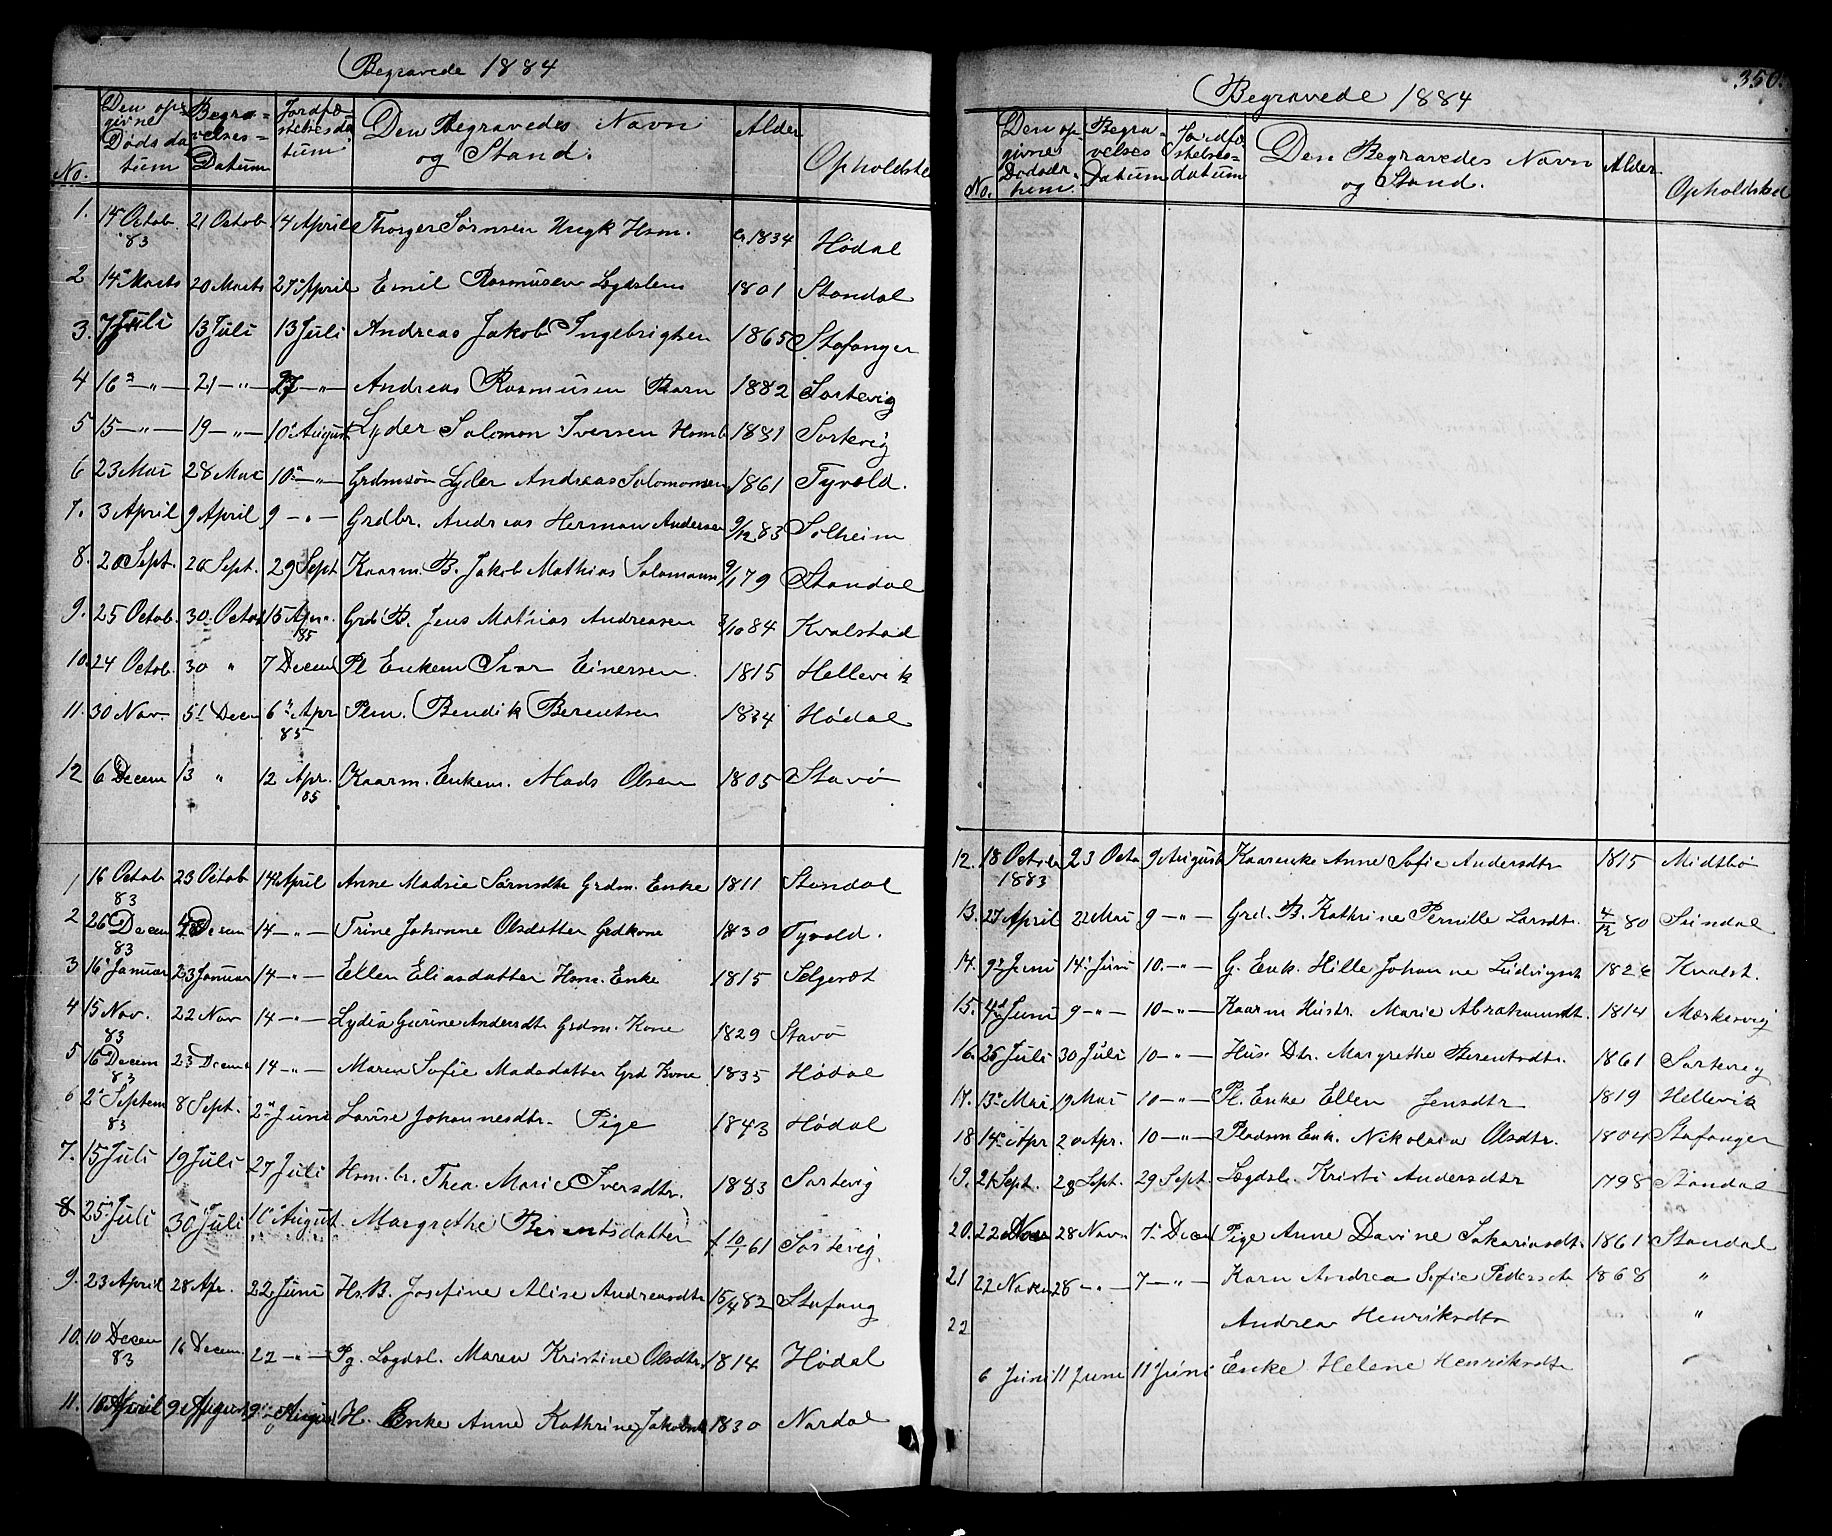 Begravede 1884
No. Den opgivne Dødsdatum Begravelses-Datum Jordfæstelsesdatum Den Begravedes Navn og Stand. Alder Opholdste
1. 14 Octob. 83 21 Octob 14 April Thorger Sørnsen Hugk Hsm. 1834 Hødal
2 14 Marts 20 Marts 27 April Emil Rasmusen Legdslem 1801 Standal
3. 7 Juli 13 Juli 13 Juli Andreas Jakob Ingebrigtsen 1865 Stafanger
4 16 -"- 21 -"- 27 -"- Andreas Rasmusen Barn 1882 Sortevig
5 15 -"- 19 -"- 10 August Lyder Solomon Iversen Hsmb 1881 Sortevig
6 23 Mai 28 Mai 10 -"- Grdmsøn Lyder Andreas Solomonsen 1861 Tyvold.
7. 3 April 9 April 9 -"- Grdbr. Andreas Herman Andersen 9/12 83 Solheim
8. 20 Sept. 26 Sept. 29 Sept Kaarm. B. Jakob Mathias Solomonsn 9/1 79 Standal
9. 25 Octob. 30 Octob 15 Apr. 85 Grd B. Jens Mathias Andreasen 3/10 84 Kvalstad
10. 24 Octob. 30 " 7 Decem Pl Enkem Ivar Einersen. 1815 Hellevik
11. 30 Nov. 5 Decem 6 Apr 85 Plm. Bendik Berentsen 1834 Hødal
12 6 Decem 13 " 12 Apr. 85 Kaarm. Enkem. Mads Olsen 1805 Stavø
1 16 Octob 83 23 Octob 14 April Anne Madsie Sørnsdtr Grdm. Enke 1811 Standal
2 26 Decem 83 Decem 14 -"- Trine Johanne Olsdatter Grdkone 1830 Tyvold.
3 16 Januar 23 Januar 14 -"- Ellen Eliasdatter Hsm. Enke 1815
4 15 Nov. 83 22 Nov 14 -"- Lydia Gurine Andersdtr Grdm. Kone 1829 Stavø
5 16 Decem 83 23 Decem 14 -"- Maren Sofie Madsdatter Grd Kone 1835 Hødal
6 2 Septem 83 8 Sept. 2 Juni Lovise Johannesdtr. Pige 1843 Hødal
7. 15 Juli 19 Juli 27 Juli Hsm. br. Thea Marie Iversdtr. 1883 Sortevig
8 25 Juli 30 Juli 10 August Margrethe Berentsdatter f 10/1 61 Sortevig
9. 23 April 28 Apr. 22 Juni Hs. B. Josefine Alise Andreasdtr 15/4 82 Stafang
10. 10 Decem 83 16 Decem. 22 -"- Pg. Legdsl. Maren Kristine Olsdtr. 1814 Hødal
11. 16 April 9 August 9 August H. Enke Anne Kathrine Jakobsd 1830 Nordal
350.
Begravede 1884
No. Den opgivne Dødsdatum. Begravelses Datum Jordfæstelsesdatum Den Begravedes Navn og Stand. Alder Opholdsted
12. 18 Octob 1883 23 Octo 9 August Kaarenke Anne Sofie Andersdtr 1815 Midtbø
13. 27 April 22 Mai 9 -"- Grd. B. Kathrine Pernille Larsdtr. 4/12 80 Indal
14. 9 Juni 14 Juni 10 -"- G. Enk. Hille Johanne Ludvigsdt 182 Kvalst.
15. 4 Juni 9 -"- 10 -"- Kaarm Hustr. Marie Abrahamsdt. 1814 Mærkesvig
16. 25 Juli 30 Juli 10 -"- Hus. Dtr. Margrethe Berentsdtr. 1861 Sortevig
17. 13 Mai 19 Mai 10 -"- Pl. Enke Ellen Jensdtr 1819 Hellevik
18 14 Apr 20 Apr. 10 -"- Pladsm Enk. Nikolaia Olsdtr. 1804 Stafanger
19. 21 Sept. 28 Sept. 29 Sept. Lægdsl. Kristi Andersdtr 1798 Standal
20. 22 Nov 28 Nov. 7 Decem Pige Anne Davine Sakariasdt. 1861 Standal
21 22 Novem 28 -"- 7 -"- Karn Andrea Sofie Pedersdtr 1868 "
22 Andrea Henriksdtr "
6 Juni 11 Juni 11 Juni Enke Helene Henriksdtr "